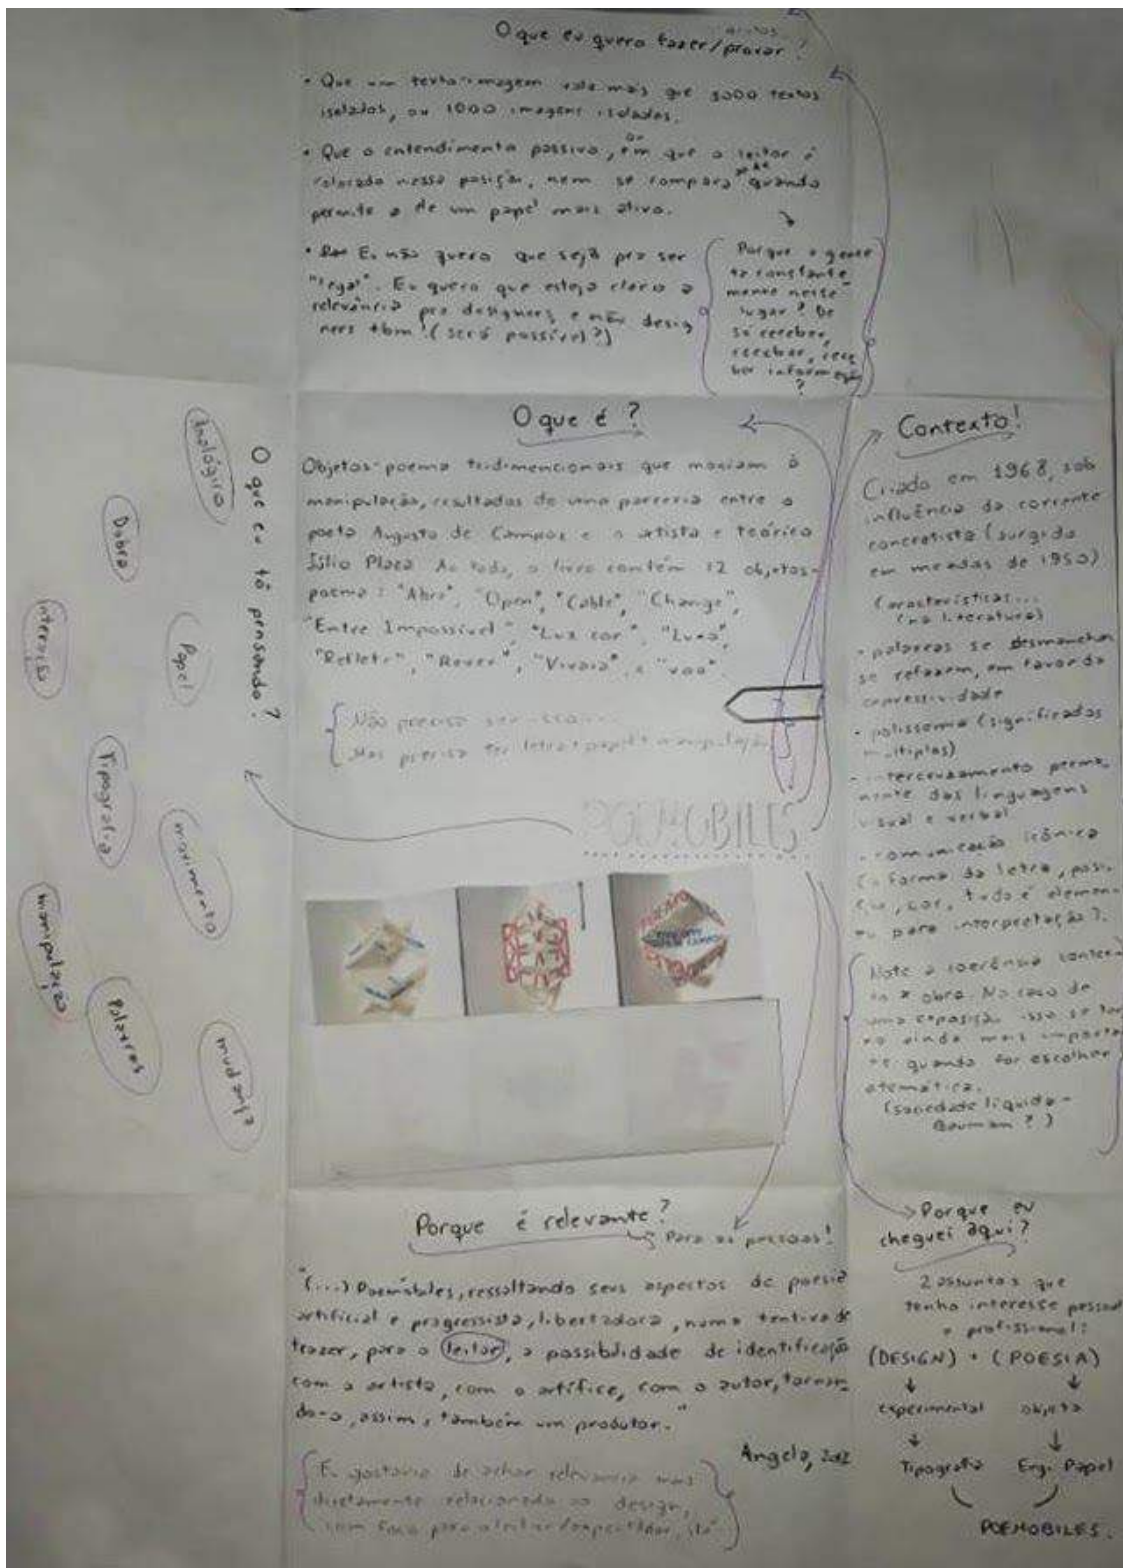 O que eu quero fazer/provar?
• Que um texto-imagem vale mais que 1000 textos
isolados, ou 1000 imagens isoladas.
• Que o entendimento passivo, em que o leitor é
colocado nessa posição, nem se compara quando
permite a de um papel mais ativo.
• Eu não quero que seja pra ser
"legal". Eu quero que esteja claro a
relevância pra designers e não desig
ners tbm! (será possível?)
Porque a gente
tá constante
mente nesse
lugar? De
só receber,
receber, rece
ber informação
?
O que é?
Objetos-poema tridimencionais que
manipulação, resultados de uma parceria entre o
poeta Augusto de Campos e o artista e teórico
Júlio Plaza. Ao todo, o livro contém 12 objetos-
poema: "Abre", "Open", "Cable", "Change",
"Entre", "Impossível", "Luz cor", "Luxo",
"Reflete", "Rever", "Vivavaia", e "voo".
Não precisa ser isso...
Mas precisa ter letra + papel + manipulação
POEMOBILES
Contexto!
Criado em 1968, sob
influência da corrente
concretista (surgida
em meados de 1950)
Características...
(na literatura)
- palavras se desmancham
se refazem, em favor da
expressividade
- polissemia (significados
múltiplos)
- intercruzamento perma
nente das linguagens
visual e verbal
- comunicação icônica
(a forma da letra, posi
ção, cor, tudo é elemen
to para interpretação).
Note a coerência contex
to x obra. No caso de
uma exposição isso se tor
na ainda mais importan
te quando for escolher
a temática.
(sociedade líquida -
Bauman?)
O que eu tô pensando?
Analógico
Dobra
Interação
Papel
Tipografia
movimento
manipulação
Palavras
mudança
Porque é relevante?
Para as pessoas!
"(...) Poemóbiles, ressaltando seus aspectos de poesia
artificial e progressista, libertadora, numa tentiva de
trazer, para o leitor, a possibilidade de identificação
com o artista, com o artífice, com o autor, tornan
do-o, assim, também um produtor."
Angelo, 2012
Eu gostaria de achar relevancia mais
diretamente relacionada ao design,
com foco para o leitor/espectador,
Porque eu
cheguei aqui?
2 assuntos que
tenho interesse pessoal
e profissional:
(DESIGN) + (POESIA)
experimental objeto
Tipografia Eng. Papel
POEMOBILES.